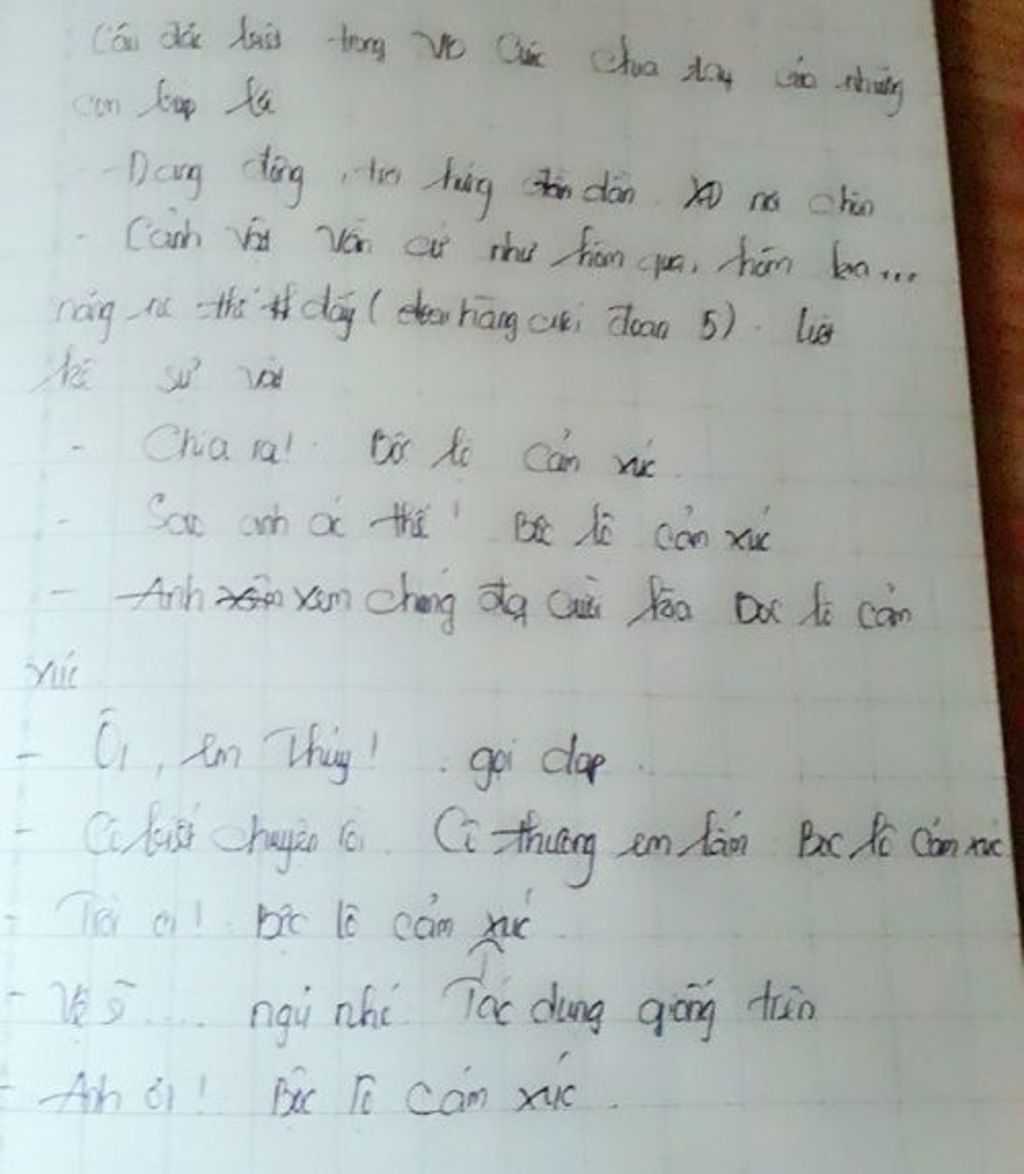 Câu đặc biệt trong VB Cuộc chia tay của những
con búp bê
- Đang đông, trời hửng dần XĐ nơi chốn
- Cảnh vật vẫn cứ như hôm qua, hôm kia...
nặng nề thế này ( hàng cuối đoạn 5). Liệt
kê sự vật
- Chia ra! Bộc lộ cảm xúc.
- Sao anh ác thế! Bộc lộ cảm xúc
- Anh xem chúng đã cười Bộc lộ cảm
xúc
- Ôi, em Thủy! . gọi đáp.
- Cô biết chuyện rồi. Cô thương em lắm. Bộc lộ cảm xúc
- Trời ơi! Bộc lộ cảm xúc.
- Vệ sĩ .... ngủ nhé. Tác dụng giống trên
- Anh ơi! Bộc lộ cảm xúc.